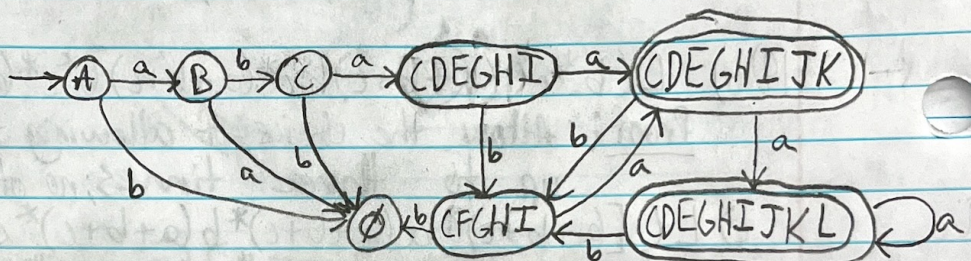 A a B b C a CDEGHI a CDEGHIJK
b a b b b a a
Ø b CFGHI b CDEGHIJKL a